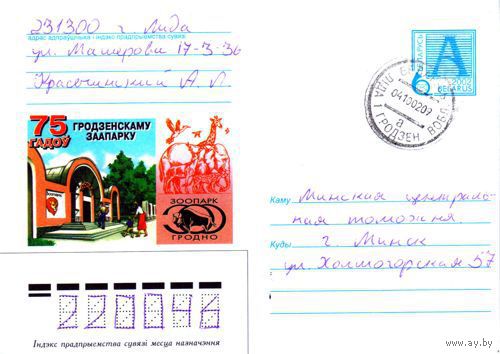 231300 г. Лида
адрас адпраўшчыка і індэкс прадпрыемства сувязі
ул. Машерова 17-3-36
Красочинский А. Л.
75 ГАДОЎ
ГРОДЗЕНСКАМУ ЗААПАРКУ
ЗООПАРК
ГРОДНО
БЕЛАРУСЬ
А
2002
BELARUS
ЛІДА
041002 09
а
1 ГРОДЗЕН. ВОБЛ.
Каму Минская центральная
ная таможня
Куды г. Минск
ул. Холмогорская 57
220046
Індэкс прадпрыемства сувязі месца назначэння
www.ay.by